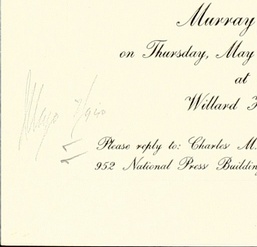 Murray
on Thursday, May
at
Willard
Please reply to: Charles M.
952 National Press Building